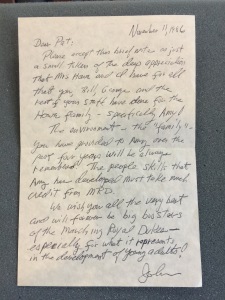 November 11, 1986
Dear Pat:
Please accept this brief note as just
a small token of the deep appreciation
that Mrs. Howe and I have for all
that you, Billy, George and the
rest of your staff have done for the
Howe family - specifically Amy!
The environment - the "family" -
you have provided to Amy over the
past four years will be always
remembered! The people skills that
Amy has developed must take much
credit from MRD.
We wish you all the very best
and will forever be big boosters
of the Marching Royal Dukes -
especially for what it represents
in the development of young adults!
John